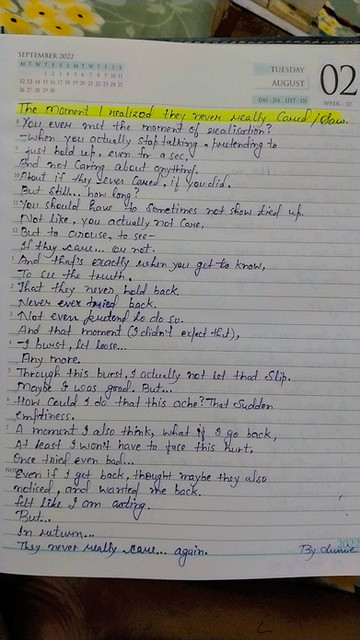 SEPTEMBER 2022
M T W T F S S M T W T F S S
1 2 3 4 5 6 7 8 9 10 11
12 13 14 15 16 17 18 19 20 21 22 23 24 25
26 27 28 29 30
TUESDAY
AUGUST
02
WEEK - 32
The Moment I realized they never really Cared/Saw.
You ever met the moment of realisation?
-When you actually stop talking, pretending to
just hold up, even for a sec,
And not caring about anything.
About if they ever cared, if you did.
But still... how long?
You should have to sometimes not show tied up.
Not like, you actually not care,
But to arouse, to see-
If they care... or not.
And that's exactly when you get to know,
To see the truth.
That they never, hold back.
Never ever tried back.
Not even pretend to do so.
And that moment (I didn't expect this),
-I burst, let loose...
Any more.
Through this burst, I actually not let that slip.
Maybe I was good. But...
How could I do that this ache? That sudden
emptiness.
A moment I also think, what if I go back,
At least I won't have to face this hurt.
Once tried even bad...
Even if I get back, thought maybe they also
noticed, and wanted me back.
felt like I am acting.
But...
In return...
They never really care... again.
2022
By